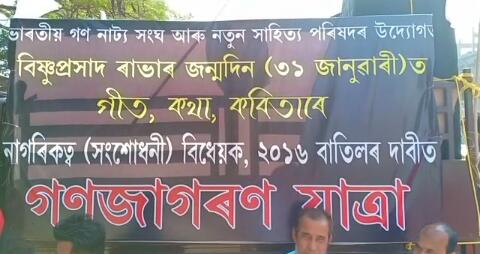 ভাৰতীয় গণ নাট্য সংঘ আৰু নতুন সাহিত্য পৰিষদৰ উদ্যোগত
বিষ্ণুপ্ৰসাদ ৰাভাৰ জন্মদিন (৩১ জানুৱাৰী)ত
গীত, কথা, কবিতাৰে
নাগৰিকত্ব (সংশোধনী) বিধেয়ক, ২০১৬ বাতিলৰ দাবীত
গণজাগৰণ যাত্ৰা